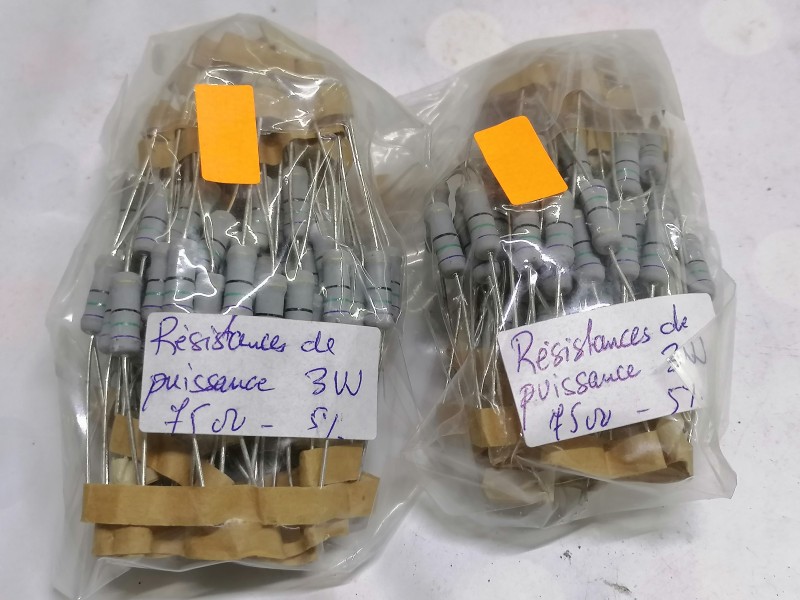 Résistances de
puissance 3W
75Ω - 5%
Résistances de
puissance 3W
75Ω - 5%